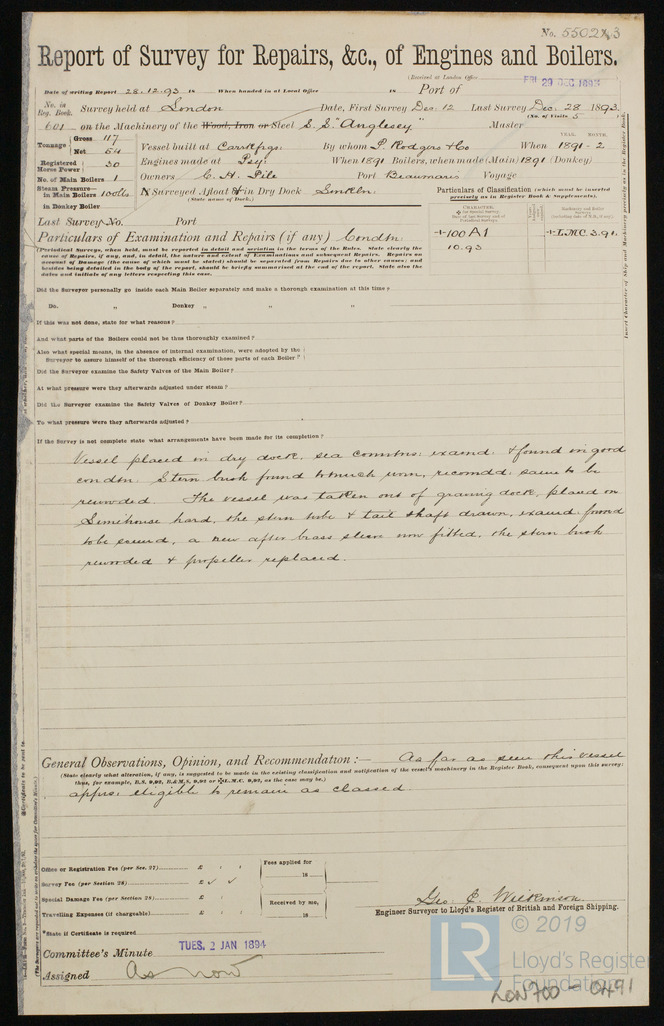 No. 55023
Report of Survey for Repairs, &c., of Engines and Boilers.
(Received at London Office FRI 29 DEC 1893
Date of writing Report 28.12.93 18 When handed in at Local Office 18 Port of
No. in Reg. Book. Survey held at London Date, First Survey Dec. 12 Last Survey Dec. 28 1893.
(No. of Visits 5
601 on the Machinery of the Wood, Iron or Steel S. S. "Anglesey" Master
Tonnage Gross 117 Net 54
Vessel built at Carrickfergs: By whom P. Rodgers & Co When YEAR. MONTH. 1891 - 2
Registered Horse Power 30 Engines made at When 1891 Boilers, when made (Main) 1891 (Donkey)
No. of Main Boilers 1 Owners C. H. Pile Port Beaumaris Voyage
Steam Pressure in Main Boilers 100lbs If Surveyed Afloat or in Dry Dock
(State name of Dock.)
in Donkey Boiler
Particulars of Classification (which must be inserted precisely as in Register Book & Supplements).
+100 A1 +LMC 3.91.
10.93
Last Survey No. Port
Particulars of Examination and Repairs (if any) Condtn.
(Periodical Surveys, when held, must be reported in detail and seriatim in the terms of the Rules. State clearly the
cause of Repairs, if any, and, in detail, the nature and extent of Examinations and subsequent Repairs. Repairs on
account of Damage (the cause of which must be stated) should be separated from Repairs due to other causes; and
besides being detailed in the body of the report, should be briefly summarised at the end of the report. State also the
dates and initials of any letters respecting this case.
Did the Surveyor personally go inside each Main Boiler separately and make a thorough examination at this time?
Do. „ Donkey „ „ „
If this was not done, state for what reasons?
And what parts of the Boilers could not be thus thoroughly examined?
Also what special means, in the absence of internal examination, were adopted by the
Surveyor to assure himself of the thorough efficiency of those parts of each Boiler?
Did the Surveyor examine the Safety Valves of the Main Boiler?
At what pressure were they afterwards adjusted under steam?
Did the Surveyor examine the Safety Valves of Donkey Boiler?
To what pressure were they afterwards adjusted?
If the Survey is not complete state what arrangements have been made for its completion?
Vessel placed in dry dock, sea connctns: examd. & found in good
condtn. Stern bush found to much worn, recomdd. same to be
rewooded. The vessel was taken out of graving dock, placed on
Limehouse hard, the stern tube & tail shaft drawn, examd. found
to be scored, a new after brass sleeve now fitted, the stern bush
rewooded & propeller replaced.
General Observations, Opinion, and Recommendation:— As far as seen this vessel
(State clearly what alteration, if any, is suggested to be made in the existing classification and notification of the vessel's machinery in the Register Book, consequent upon this survey;
thus, for example, B.S. 9,92, B.&M.S. 9,92 or +L.M.C. 9,92, as the case may be.)
apprs: eligible to remain as classed.
Office or Registration Fee (per Sec. 27) £
Survey Fee (per Section 28) £
Special Damage Fee (per Section 28) £
Travelling Expenses (if chargeable) £
Fees applied for 18
Received by me, 18
Geo. E. Wilkinson
Engineer Surveyor to Lloyd's Register of British and Foreign Shipping.
*State if Certificate is required
Committee's Minute TUES. 2 JAN 1894
Assigned As now
LR © 2019
Lloyd's Register
Foundation
LON 700 - 0491